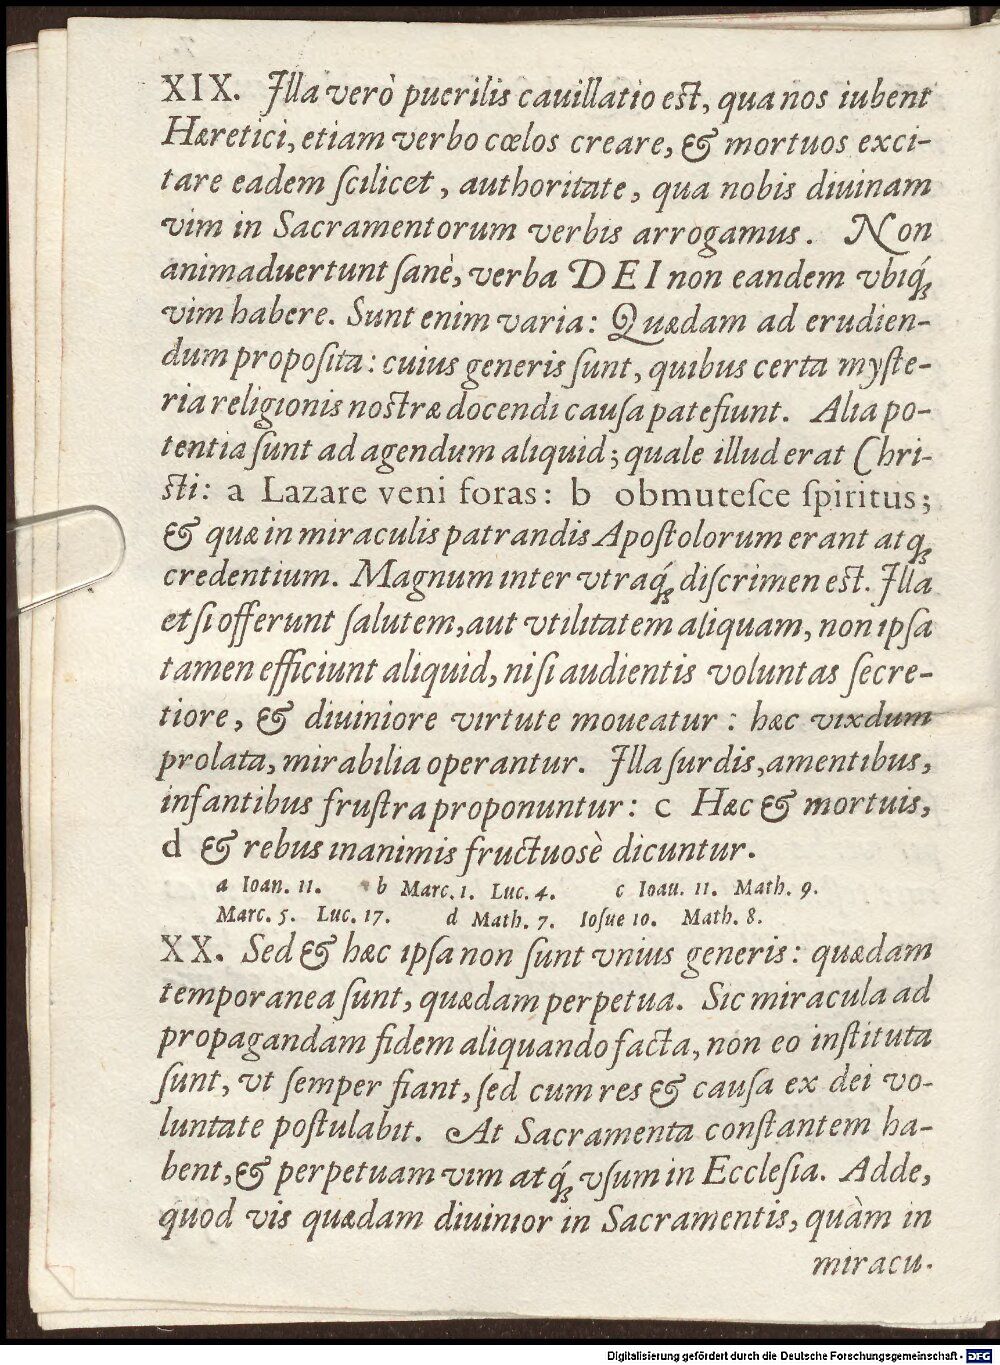 XIX. Illa verò puerilis cauillatio est, qua nos iubent
Hæretici, etiam verbo cœlos creare, & mortuos exci-
tare eadem ſcilicet, authoritate, qua nobis diuinam
vim in Sacramentorum verbis arrogamus. Non
animaduertunt ſanè, verba DEI non eandem vbiq́;
vim habere. Sunt enim varia: Quædam ad erudien-
dum propoſita: cuius generis ſunt, quibus certa myſte-
ria religionis noſtræ docendi cauſa patefiunt. Alia po-
tentia ſunt ad agendum aliquid; quale illud erat Chri-
ſti: a Lazare veni foras: b obmuteſce ſpiritus;
& quæ in miraculis patrandis Apoſtolorum erant atq;
credentium. Magnum inter vtraq́; diſcrimen est. Illa
etſi offerunt ſalutem, aut vtilitatem aliquam, non ipſa
tamen efficiunt aliquid, niſi audientis voluntas ſecre-
tiore, & diuiniore virtute moueatur: hæc vixdum
prolata, mirabilia operantur. Illa ſurdis, amentibus,
infantibus fruſtra proponuntur: c Hæc & mortuis,
d & rebus inanimis fructuosè dicuntur.
a Ioan. 11. b Marc. 1. Luc. 4. c Ioau. 11. Math. 9.
Marc. 5. Luc. 17. d Math. 7. Ioſue 10. Math. 8.
XX. Sed & hæc ipſa non ſunt vnius generis: quædam
temporanea ſunt, quædam perpetua. Sic miracula ad
propagandam fidem aliquando facta, non eo inſtituta
ſunt, vt ſemper fiant, ſed cum res & cauſa ex dei vo-
luntate poſtulabit. At Sacramenta conſtantem ha-
bent, & perpetuam vim atq́; vſum in Eccleſia. Adde,
quod vis quædam diuinior in Sacramentis, quàm in
miracu-
Digitalisierung gefördert durch die Deutsche Forschungsgemeinschaft - DFG